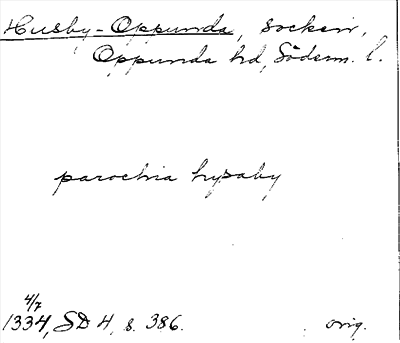 Husby-Oppunda, socken,
Oppunda hd, Söderm. l.
parochia hysaby
4/7
1334, SD 4, s. 386. orig.